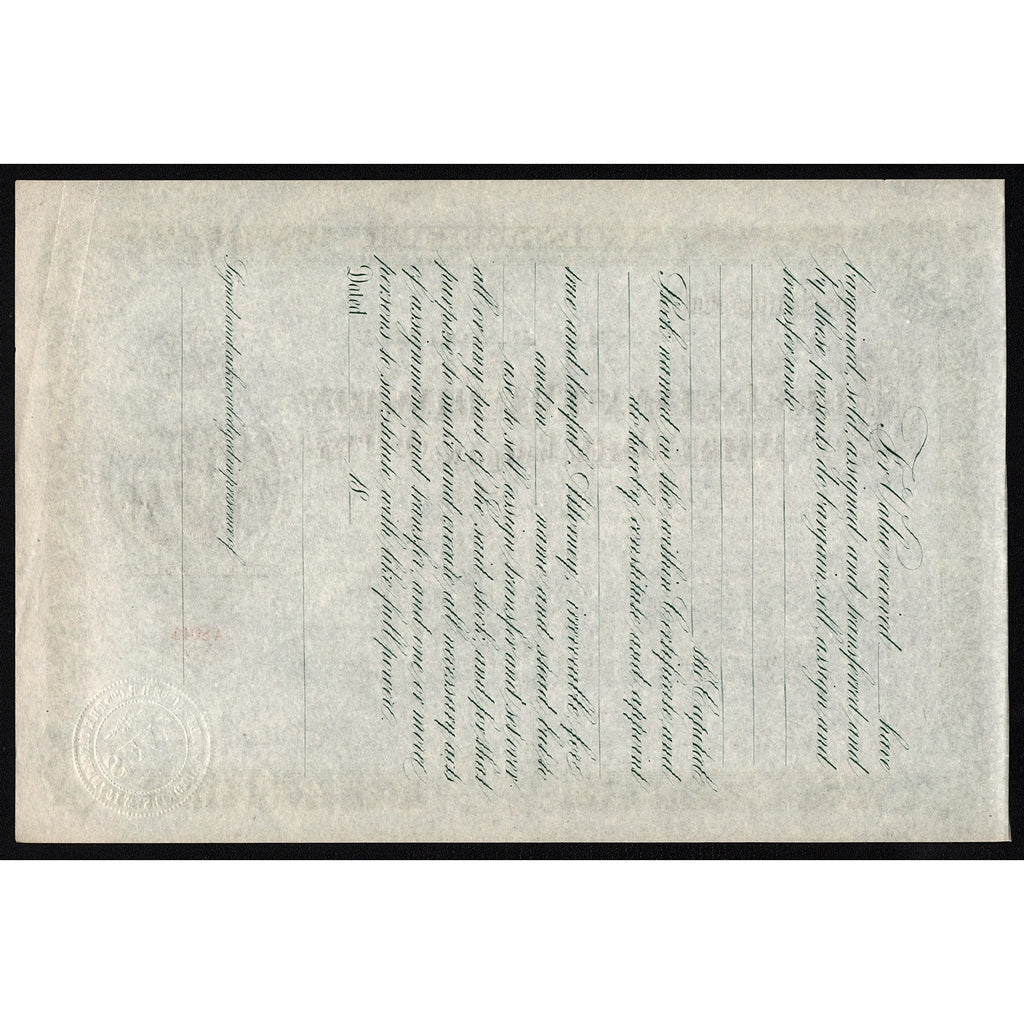 For Value received have
bargained, sold, assigned and transferred, and
by these presents do bargain, sell, assign and
transfer unto
the Capital
Stock named in the within Certificate, and
do hereby constitute and appoint
true and lawful Attorney, irrevocable for
and in name and stead but to
use to sell, assign, transfer and set over,
all or any part of the said stock, and for that
purpose to make and execute all necessary acts
of assignment and transfer, and one or more
persons to substitute with like full power.
Dated 18
Signed and acknowledged in presence of